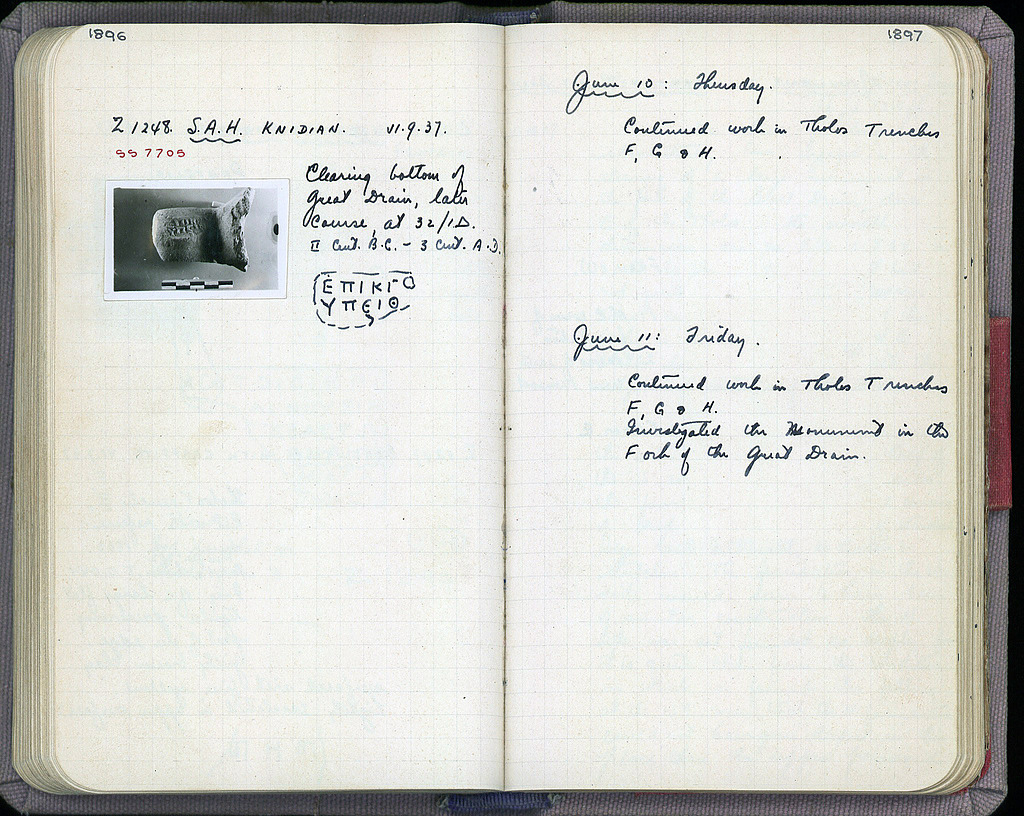 1896
Z 1248. S.A.H. KNIDIAN. VI.9.37.
SS 7705
Clearing bottom of
Great Drain, later
Course, at 32/ΙΔ.
II Cent. B.C. – 3 Cent. A.D.
ΕΠΙΚΓΟ
ΥΠΕΙΘ
1897
June 10: Thursday.
Continued work in Tholos Trenches
F, G & H.
June 11: Friday.
Continued work in Tholos Trenches
F, G & H.
Investigated the Monument in the
Fork of the Great Drain.